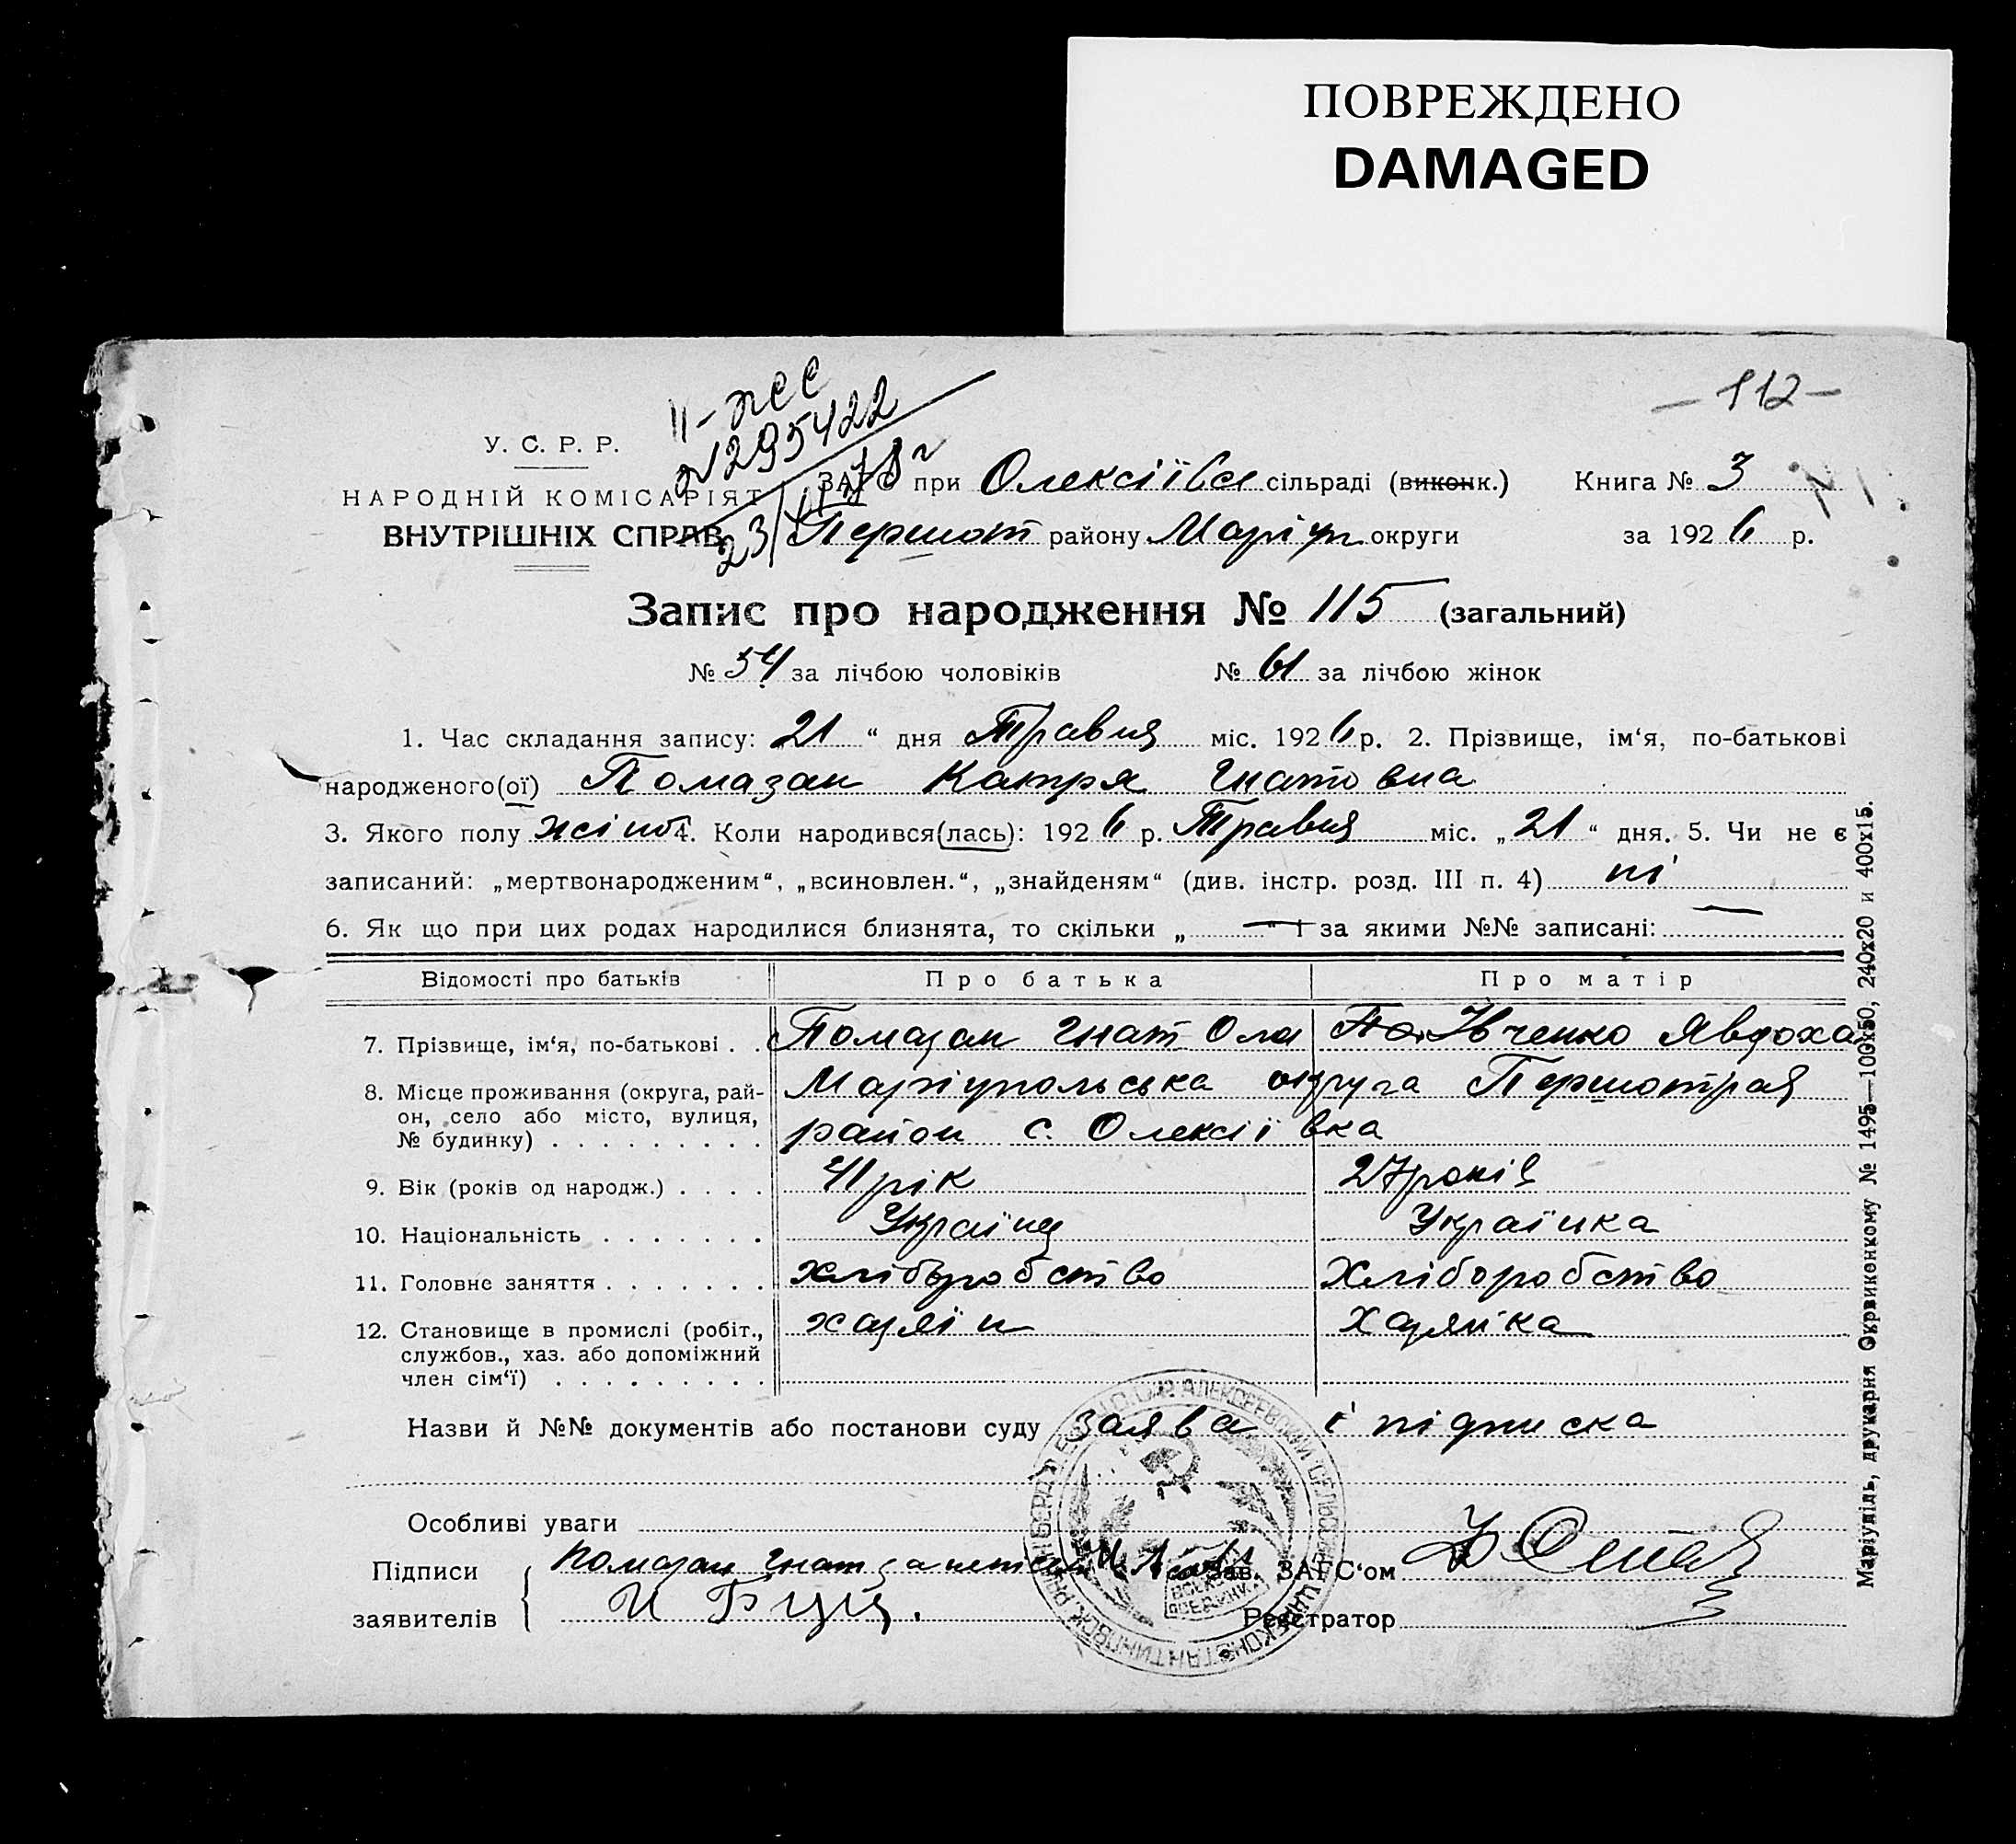 ПОВРЕЖДЕНО
DAMAGED
- 112 -
II-ЖС
№ 295422
23/III 78 г
У. С. Р. Р.
НАРОДНІЙ КОМІСАРІЯТ
ВНУТРІШНІХ СПРАВ
ЗАГС при Олексіївсь сільраді (виконк.) Книга № 3
Першот району Маріуп округи за 1926 р.
Запис про народження № 115 (загальний)
№ 54 за лічбою чоловіків № 61 за лічбою жінок
1. Час складання запису: 21 “ дня Травня міс. 1926 р. 2. Прізвище, ім‘я, по-батькові
народженого(ої) Помазан Катря Гнатовна
3. Якого полу жіноб 4. Коли народився(лась): 1926 р. Травня міс. „ 21 “ дня. 5. Чи не є
записаний: „мертвонародженим“, „всиновлен.“, „знайденям“ (див. інстр. розд. III п. 4) ні
6. Як що при цих родах народилися близнята, то скільки „ — “ і за якими №№ записані: —
Відомості про батьків Про батька Про матір
7. Прізвище, ім‘я, по-батькові . . Помазан Гнат Ол Ївченко Явдоха
8. Місце проживання (округа, рай-
он, село або місто, вулиця,
№ будинку) . . . . . . . . .
Маріупольська округа Першотрав
район с. Олексіївка
9. Вік (років од народж.) . . . . 41 рік 27 років
10. Національність . . . . . . . Українц Українка
11. Головне заняття . . . . . . . хліборобство Хліборобство
12. Становище в промислі (робіт.,
службов., хаз. або допоміжний
член сім‘ї) . . . . . . . . .
хазяїн Хазяйка
Назви й №№ документів або постанови суду заява і підписка
Особливі уваги
Підписи
заявителів
Помазан Гнат а неграм
Зав. ЗАГС‘ом
Реєстратор
Маріупіль, друкарня Окрвиконкому № 1495—100х50, 240х20 и 400х15.